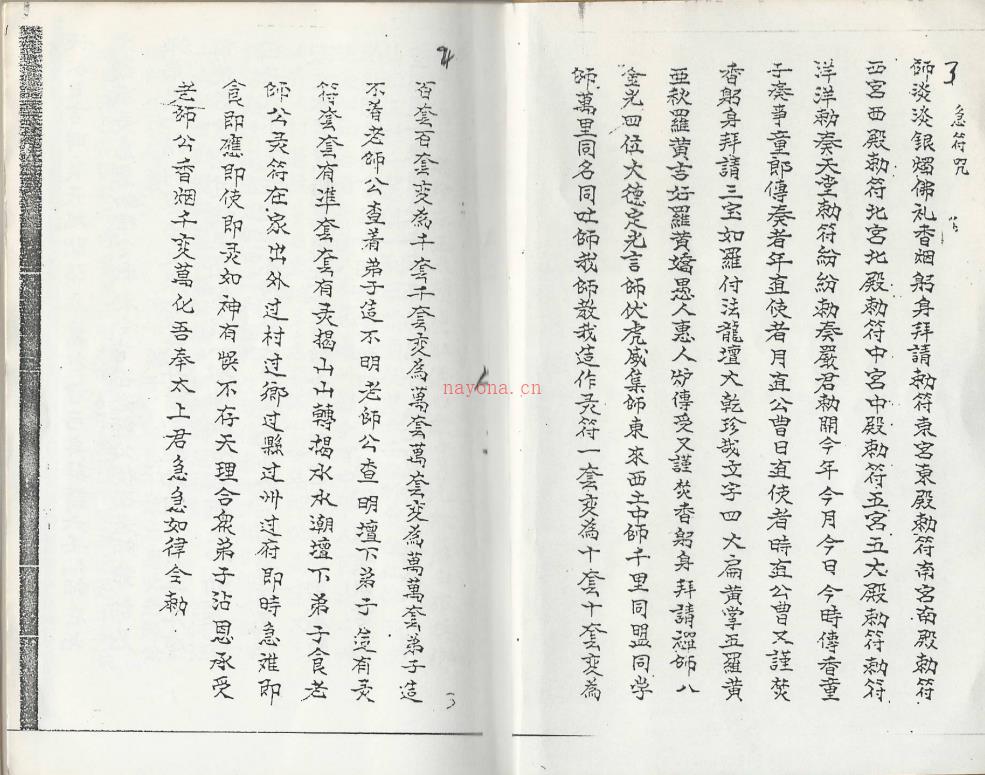 3
急符咒
师淡淡银烛佛礼香烟躬身拜請勅符東宮東殿勅符南宮南殿勅符
西宮西殿勅符北宮北殿勅符中宮中殿勅符五宮五大殿勅符勅符
洋洋勅奏天堂勅符紛紛勅奏嚴君勅開今年今月今日今時傳香童
子奏事童郎傳奏者年直使者月直公曹日直使者時直公曹又謹焚
香躬身拜請三宝如羅付法龍壇大乾珍哉文字四大扁黄掌五羅黄
亚秋羅黄吉好羅黄嬌愚人惠人妙傳受又謹焚香躬身拜請禪師八
金光四位大德定光言师伏虎威集师東來西土中师千里同盟同学
师萬里同名同吐师我师教我造作灵符一套变為十套十套变為
百套百套变為千套千套变為萬套萬套变為萬萬套弟子造
不着老师公查着弟子造不明老师公查明壇下弟子造有灵
符套套有準套套有灵揭山山轉揭水水潮壇下弟子食老
师公灵符在家出外过村过鄉过縣过州过府即時急难即
食即應即使即灵如神有悮不存天理合众弟子沾恩承受
老师公香烟千变萬化吾奉太上君急急如律令勅
nayona.cn